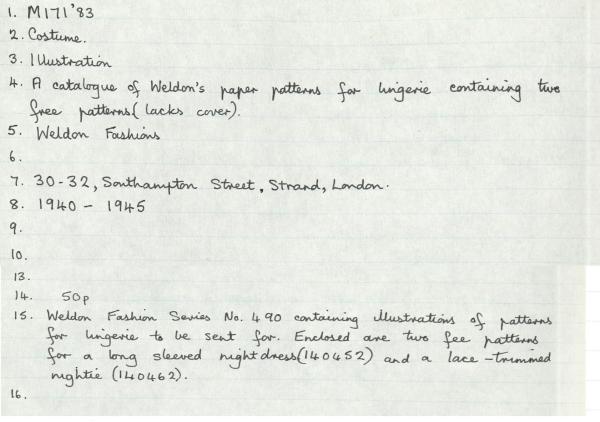 1. M171'83
2. Costume.
3. Illustration
4. A catalogue of Weldon's paper patterns for lingerie containing two
free patterns (lacks cover).
5. Weldon Fashions
6.
7. 30-32, Southampton Street, Strand, London.
8. 1940 - 1945
9.
10.
13.
14. 50p
15. Weldon Fashion Series No. 490 containing illustrations of patterns
for lingerie to be sent for. Enclosed are two fee patterns
for a long sleeved nightdress (140452) and a lace-trimmed
nightie (140462).
16.